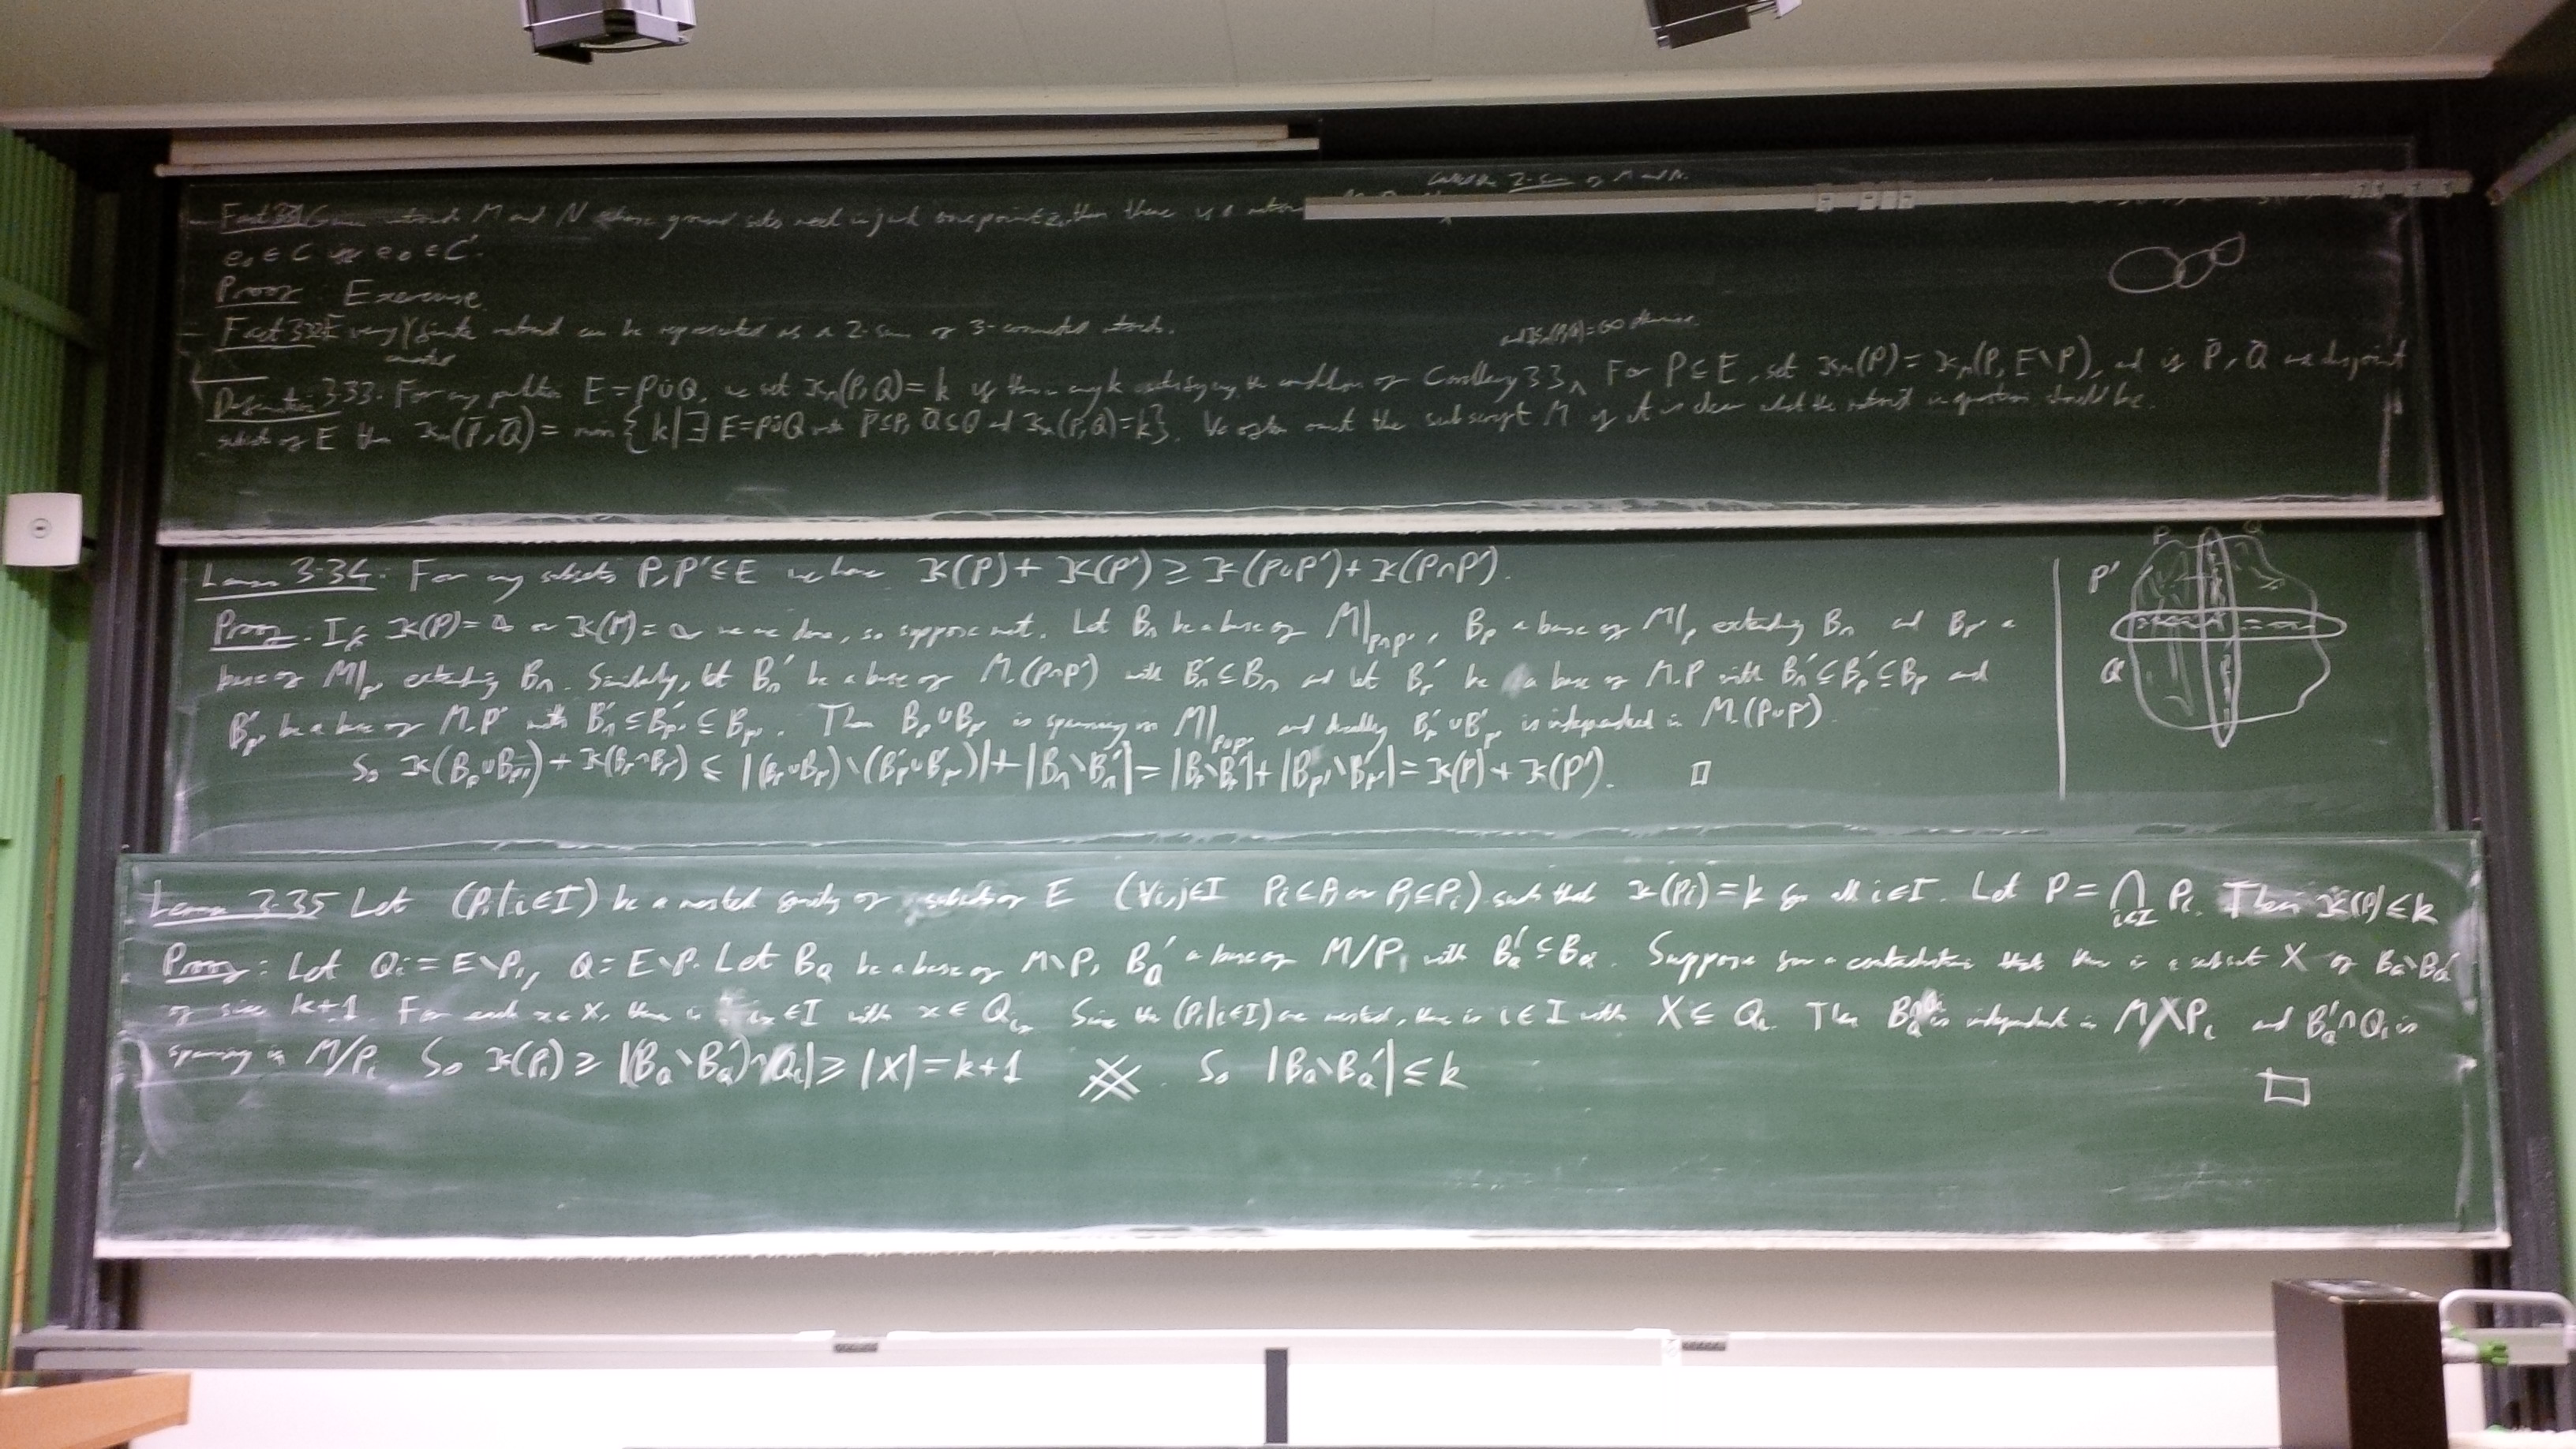 called the 2-sum of M and N.
Fact Given matroids M and N whose ground sets meet in just one point e₀, then there is a matroid
e₀ ∈ C e₀ ∈ C'.
Proof: Exercise.
Fact 3.32 Every finite matroid can be represented as a 2-sum of 3-connected matroids.
connected
and κ_M(P,Q)=∞ otherwise.
Definition 3.33. For any partition E=P∪̇Q, we set κ_M(P,Q)=k if there is any k satisfying the conditions of Corollary 3.3 ∧ For P⊆E, set κ_M(P)=κ_M(P,E∖P), and if P̄, Q̄ are disjoint
subsets of E then κ_M(P̄,Q̄)= min{k|∃ E=P∪̇Q with P̄⊆P, Q̄⊆Q and κ_M(P,Q)=k}. We often omit the subscript M if it is clear what the matroid in question should be.
P Q
Lemma 3.34: For any subsets P,P'⊆E we have κ(P)+κ(P')≥κ(P∪P')+κ(P∩P').
P'
Proof: If κ(P)=∞ or κ(P')=∞ we are done, so suppose not. Let B∩ be a base of M|P∩P', B_P a base of M|P extending B∩ and B_P' a
base of M|P' extending B∩. Similarly, let B∩' be a base of M.(P∩P') with B∩'⊆B∩ and let B_P' be a base of M.P with B∩'⊆B_P'⊆B_P and
Q
B'_P' be a base of M.P' with B∩'⊆B'_P'⊆B_P'. Then B_P∪B_P' is spanning in M|P∪P' and dually B'_P∪B'_P' is independent in M.(P∪P').
So κ(B_P∪B_P')+κ(B_P∩B_P')≤|(B_P∪B_P')∖(B'_P∪B'_P')|+|B∩∖B∩'|=|B_P∖B'_P|+|B_P'∖B'_P'|=κ(P)+κ(P'). □
Lemma 3.35 Let (P_i|i∈I) be a nested family of subsets of E (∀i,j∈I P_i⊆P_j or P_j⊆P_i) such that κ(P_i)=k for all i∈I. Let P=⋂_{i∈I} P_i. Then κ(P)≤k
Proof: Let Q_i=E∖P_i, Q=E∖P. Let B_Q be a base of M∖P, B_Q' a base of M/P, with B_Q'⊆B_Q. Suppose for a contradiction that there is a subset X of B_Q∖B_Q'
of size k+1. For each x∈X, there is i_x∈I with x∈Q_{i_x}. Since the (P_i|i∈I) are nested, there is i∈I with X⊆Q_i. Then B_Q∩Q_i is independent in M∖P_i and B_Q'∩Q_i is
spanning in M/P_i. So κ(P_i)≥|(B_Q∖B_Q')∩Q_i|≥|X|=k+1 ※. So |B_Q∖B_Q'|≤k □